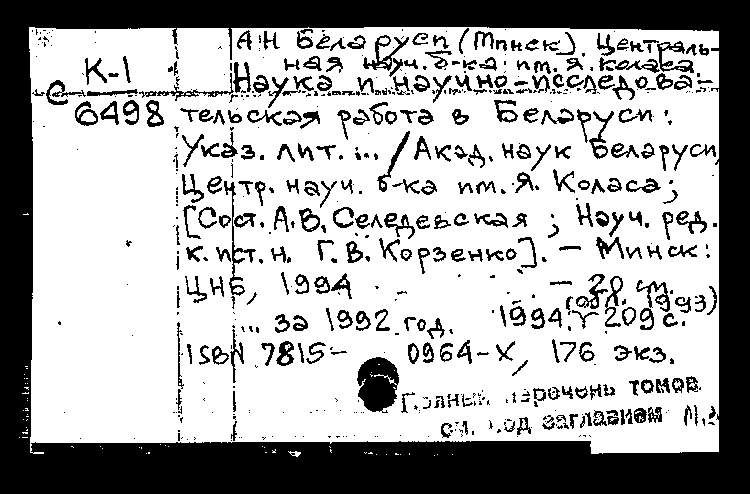 АН Беларуси (Минск). Централь-
ная науч. б-ка им. Я. Коласа.
К-1
Наука и научно-исследова-
С
6498
тельская работа в Беларуси:
Указ. лит. ... / Акад. наук Беларуси,
Центр. науч. б-ка им. Я. Коласа;
[Сост. А.В. Селедевская ; Науч. ред.
к. ист. н. Г.В. Корзенко]. — Минск:
ЦНБ, 1994 . - . . . — 20 см.
(обл. 1993)
... за 1992 год. 1994. 209 с.
ISBN 7815- 0964-X, 176 экз.
Полный перечень томов
см. под заглавием